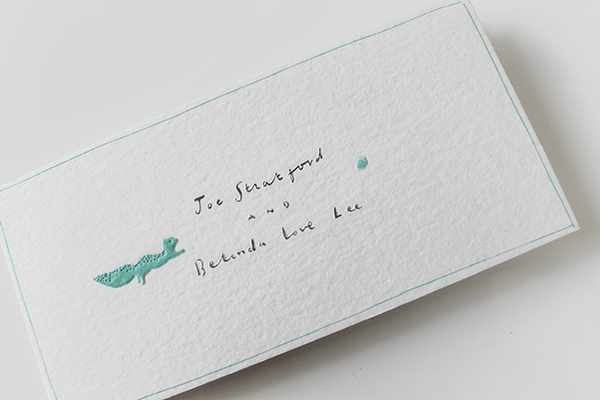 Joe Stratford
AND
Belinda Love Lee